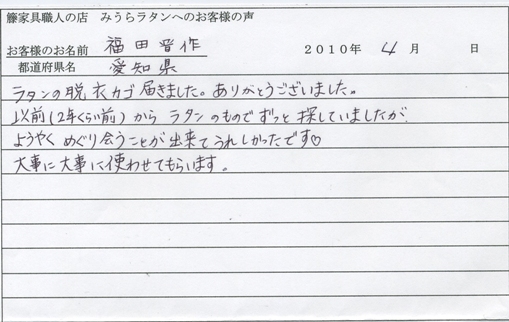 籐家具職人の店　みうらラタンへのお客様の声
お客様のお名前　福田晋作　2010年　4月　日
都道府県名　愛知県
ラタンの脱衣カゴ届きました。ありがとうございました。
以前(2年くらい前)から ラタンのものでずっと探していましたが
ようやく めぐり会うことが出来てうれしかったです♡
大事に大事に使わせてもらいます。